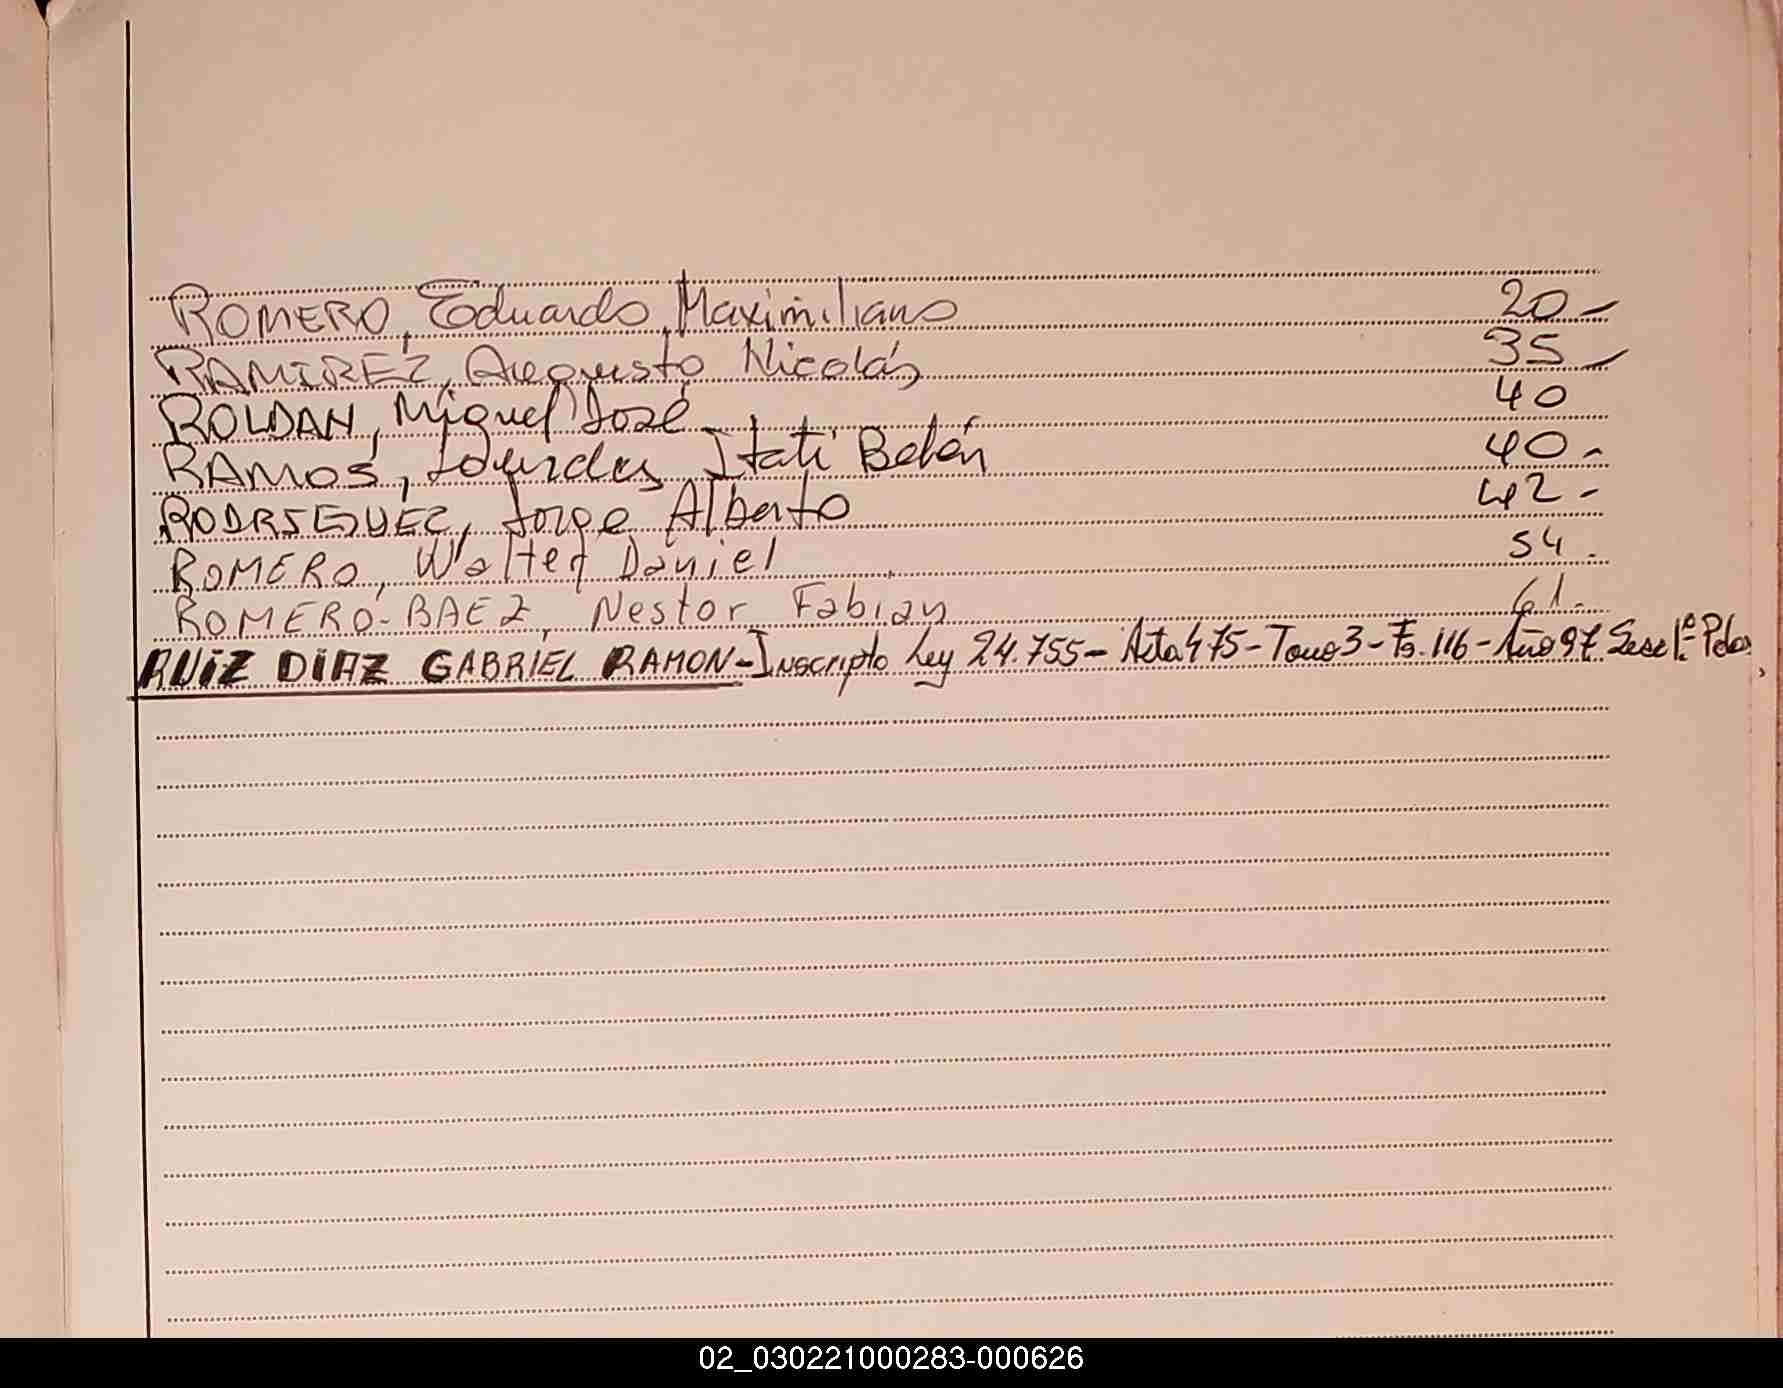 ROMERO, Eduardo Maximiliano 20-
RAMIREZ, Augusto Nicolás 35-
ROLDAN, Miguel José 40
RAMOS, Lourdes Itati Belén 40-
RODRIGUEZ, Jorge Alberto 42-
ROMERO, Walter Daniel 54-
ROMERO-BAEZ, Nestor Fabian 61-
RUIZ DIAZ GABRIEL RAMON-Inscripto Ley 24.755-Acta 475-Tomo 3-Fs. 116-Año 97 1ª
02_030221000283-000626